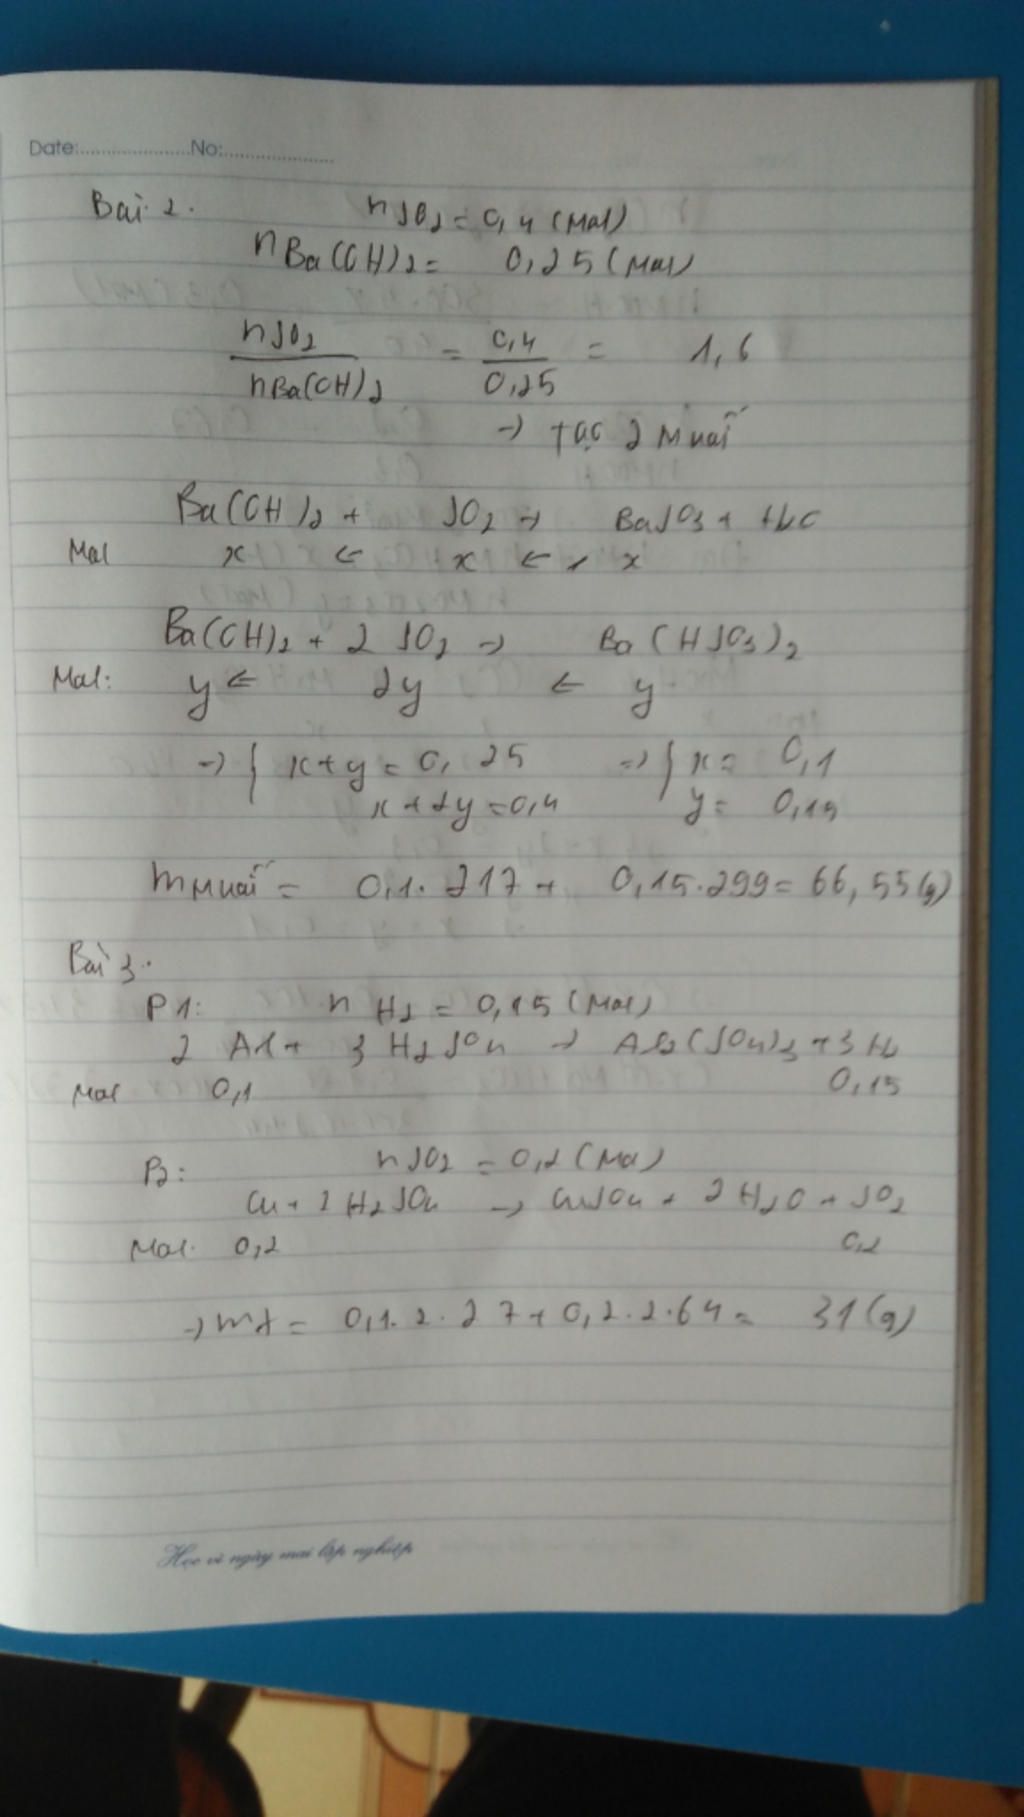 Date:.....................No:.....................
Bài 2.
nSO2 = 0,4 (Mol)
nBa(OH)2 = 0,25 (Mol)
nSO2 / nBa(OH)2 = 0,4 / 0,25 = 1,6
→ tạo 2 Muối
Ba(OH)2 + SO2 → BaSO3 + H2O
Mol x ← x ← x
Ba(OH)2 + 2 SO2 → Ba(HSO3)2
Mol: y ← 2y ← y
→ { x+y = 0,25 → { x = 0,1
x+2y = 0,4 y = 0,15
mMuối = 0,1. 217 + 0,15.299 = 66,55(g)
Bài 3.
P1: n H2 = 0,15 (Mol)
2 Al + 3 H2SO4 → Al2(SO4)3 + 3 H2
Mol 0,1 0,15
P2: nSO2 = 0,2 (Mol)
Cu + 2 H2SO4 → CuSO4 + 2 H2O + SO2
Mol. 0,2 0,2
→ mx = 0,1.2.27 + 0,2.2.64 = 31(g)
Học vì ngày mai lập nghiệp